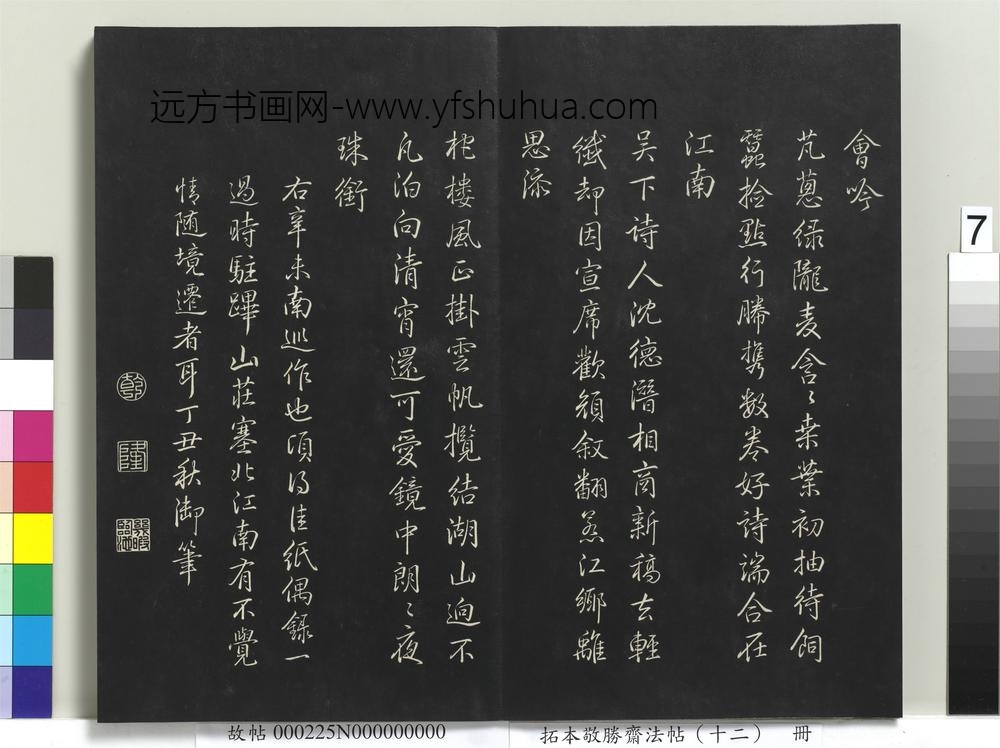 远方书画网-www.yfshuhua.com
會吟
芃蔥绿隴麦含〻桒葉初抽待飼
蠶捡點行縢携数卷好诗端合在
江南
吴下诗人沈德潛相商新稿去輕
纖却因宣席歡頻叙翻惹江鄉離
思添
柁樓風正掛雲帆攬结湖山逈不
凡泊向清宵還可愛鏡中朗〻夜
珠銜
右辛未南巡作也頃得佳纸偶錄一
過時駐蹕山莊塞北江南有不覺
情随境遷者耳丁丑秋御筆
乾
隆
7
故帖 000225N000000000
拓本敬勝齋法帖（十二） 冊